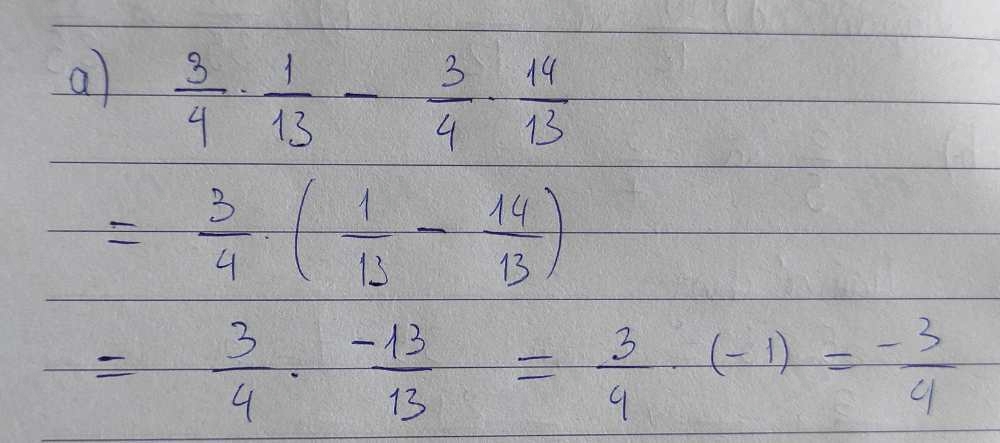 a) 3/4 · 1/13 - 3/4 · 14/13
= 3/4 · (1/13 - 14/13)
= 3/4 · -13/13 = 3/4 · (-1) = -3/4